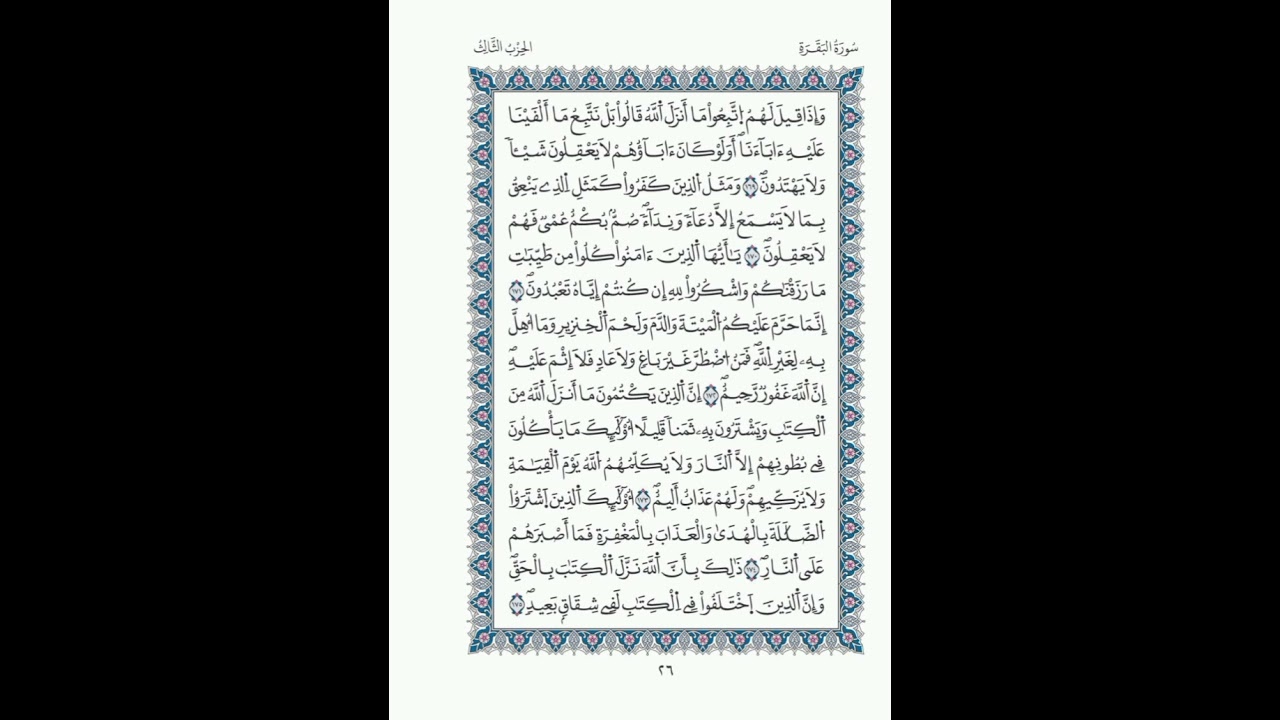 سُورَةُ البَقَرَةِ
الحِزْبُ الثَّالِثُ
وَإِذَا قِيلَ لَهُمُ اُ۪تَّبِعُواْ مَا أَنزَلَ اَ۬للَّهُ قَالُواْ بَلْ نَتَّبِعُ مَا أَلْفَيْنَا
عَلَيْهِ ءَابَآءَنَآۖ أَوَلَوْ كَانَ ءَابَآؤُهُمْ لَا يَعْقِلُونَ شَيْـٔاً
وَلَا يَهْتَدُونَۖ ١٦٩ وَمَثَلُ اُ۬لذِينَ كَفَرُواْ كَمَثَلِ اِ۬لذِے يَنْعِقُ
بِمَا لَا يَسْمَعُ إِلَّا دُعَآءً وَنِدَآءًۖ صُمُّۢ بُكْمٌ عُمْيٌ فَهُمْ
لَا يَعْقِلُونَۖ ١٧٠ يَٰأَيُّهَا اَ۬لذِينَ ءَامَنُواْ كُلُواْ مِن طَيِّبَٰتِ
مَا رَزَقْنَٰكُمْ وَاشْكُرُواْ لِلهِ إِن كُنتُمْ إِيَّاهُ تَعْبُدُونَۖ ١٧١
إِنَّمَا حَرَّمَ عَلَيْكُمُ اُ۬لْمَيْتَةَ وَالدَّمَ وَلَحْمَ اَ۬لْخِنزِيرِ وَمَا أُهِلَّ
بِهِۦ لِغَيْرِ اِ۬للَّهِۖ فَمَنُ اُ۟ضْطُرَّ غَيْرَ بَاغٍ وَلَا عَادٍ فَلَا إِثْمَ عَلَيْهِۖ
إِنَّ اَ۬للَّهَ غَفُورٌ رَّحِيمٌۖ ١٧٢ إِنَّ اَ۬لذِينَ يَكْتُمُونَ مَا أَنزَلَ اَ۬للَّهُ مِنَ
اَ۬لْكِتَٰبِ وَيَشْتَرُونَ بِهِۦ ثَمَناً قَلِيلًا أُوْلَٰٓئِكَ مَا يَأْكُلُونَ
فِے بُطُونِهِمْ إِلَّا اَ۬لنَّارَ وَلَا يُكَلِّمُهُمُ اُ۬للَّهُ يَوْمَ اَ۬لْقِيَٰمَةِ
وَلَا يُزَكِّيهِمْۖ وَلَهُمْ عَذَابٌ أَلِيمٌۖ ١٧٣ أُوْلَٰٓئِكَ اَ۬لذِينَ اَ۪شْتَرَوُاْ
اُ۬لضَّلَٰلَةَ بِالْهُدَىٰ وَالْعَذَابَ بِالْمَغْفِرَةِ فَمَا أَصْبَرَهُمْ
عَلَى اَ۬لنَّارِۖ ١٧٤ ذَٰلِكَ بِأَنَّ اَ۬للَّهَ نَزَّلَ اَ۬لْكِتَٰبَ بِالْحَقِّۖ
وَإِنَّ اَ۬لذِينَ اَ۪خْتَلَفُواْ فِے اِ۬لْكِتَٰبِ لَفِے شِقَاقٍ بَعِيدٍۖ ١٧٥
٢٦